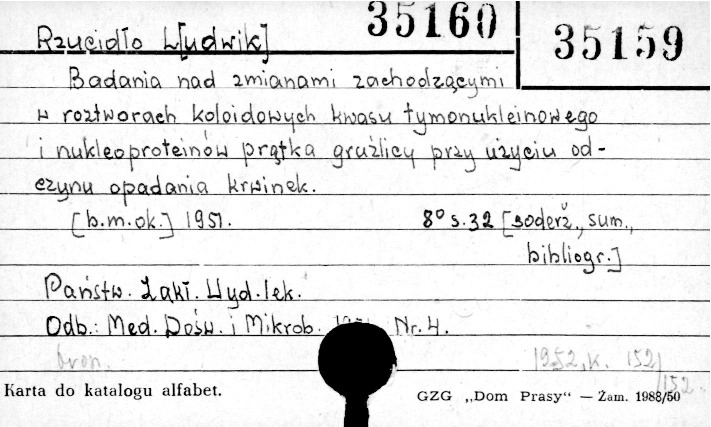 35160
35159
Rzucidło L[udwik]
Badania nad zmianami zachodzącymi
w roztworach koloidowych kwasu tymonukleinowego
i nukleoproteinów prątka gruźlicy przy użyciu od-
czynu opadania krwinek.
[b.m.ok.] 1951. 8° s.32 [soderž., sum.,
bibliogr.]
Państw. Zakł. Wyd. lek.
Odb.: Med. Dośw. i Mikrob. Nr. 4.
bron. 1952, k. 152/152.
Karta do katalogu alfabet.
GZG „Dom Prasy“ — Zam. 1988/50